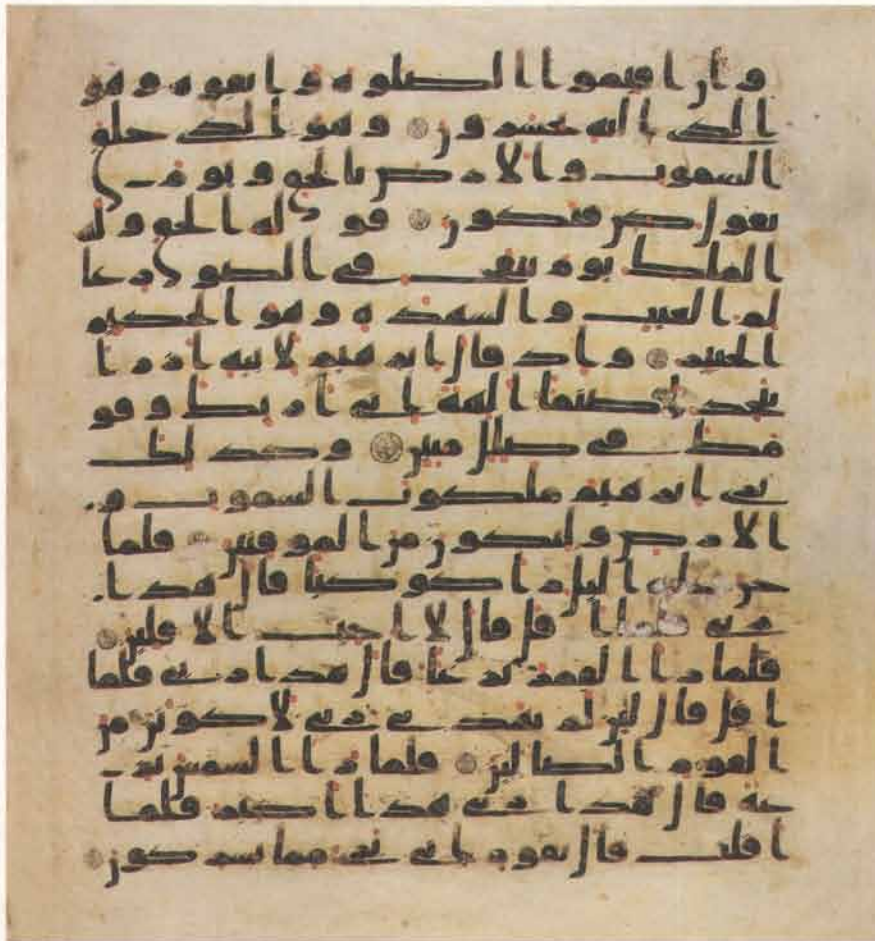 وان اقيموا الصلوه واتقوه وهو
الذى اليه تحشرون وهو الذى خلق
السموت والارض بالحق ويوم
يقول كن فيكون قوله الحق وله
الملك يوم ينفخ فى الصور عا
لم الغيب والشهده وهو الحكيم
الخبير واذ قال ابرهيم لابيه ازر ا
تتخذ اصناما الهه انى اريك وقو
مك فى ضلل مبين وكذلك
نرى ابرهيم ملكوت السموت و
الارض وليكون من الموقنين فلما
جن عليه اليل را كوكبا قال هذا
ربى فلما افل قال لا احب الافلين
فلما را القمر بزغا قال هذا ربى فلما
افل قال لين لم يهدنى ربى لاكونن من
القوم الضالين فلما را الشمس بز
غه قال هذا ربى هذا اكبر فلما
افلت قال يقوم انى برى مما تشركون